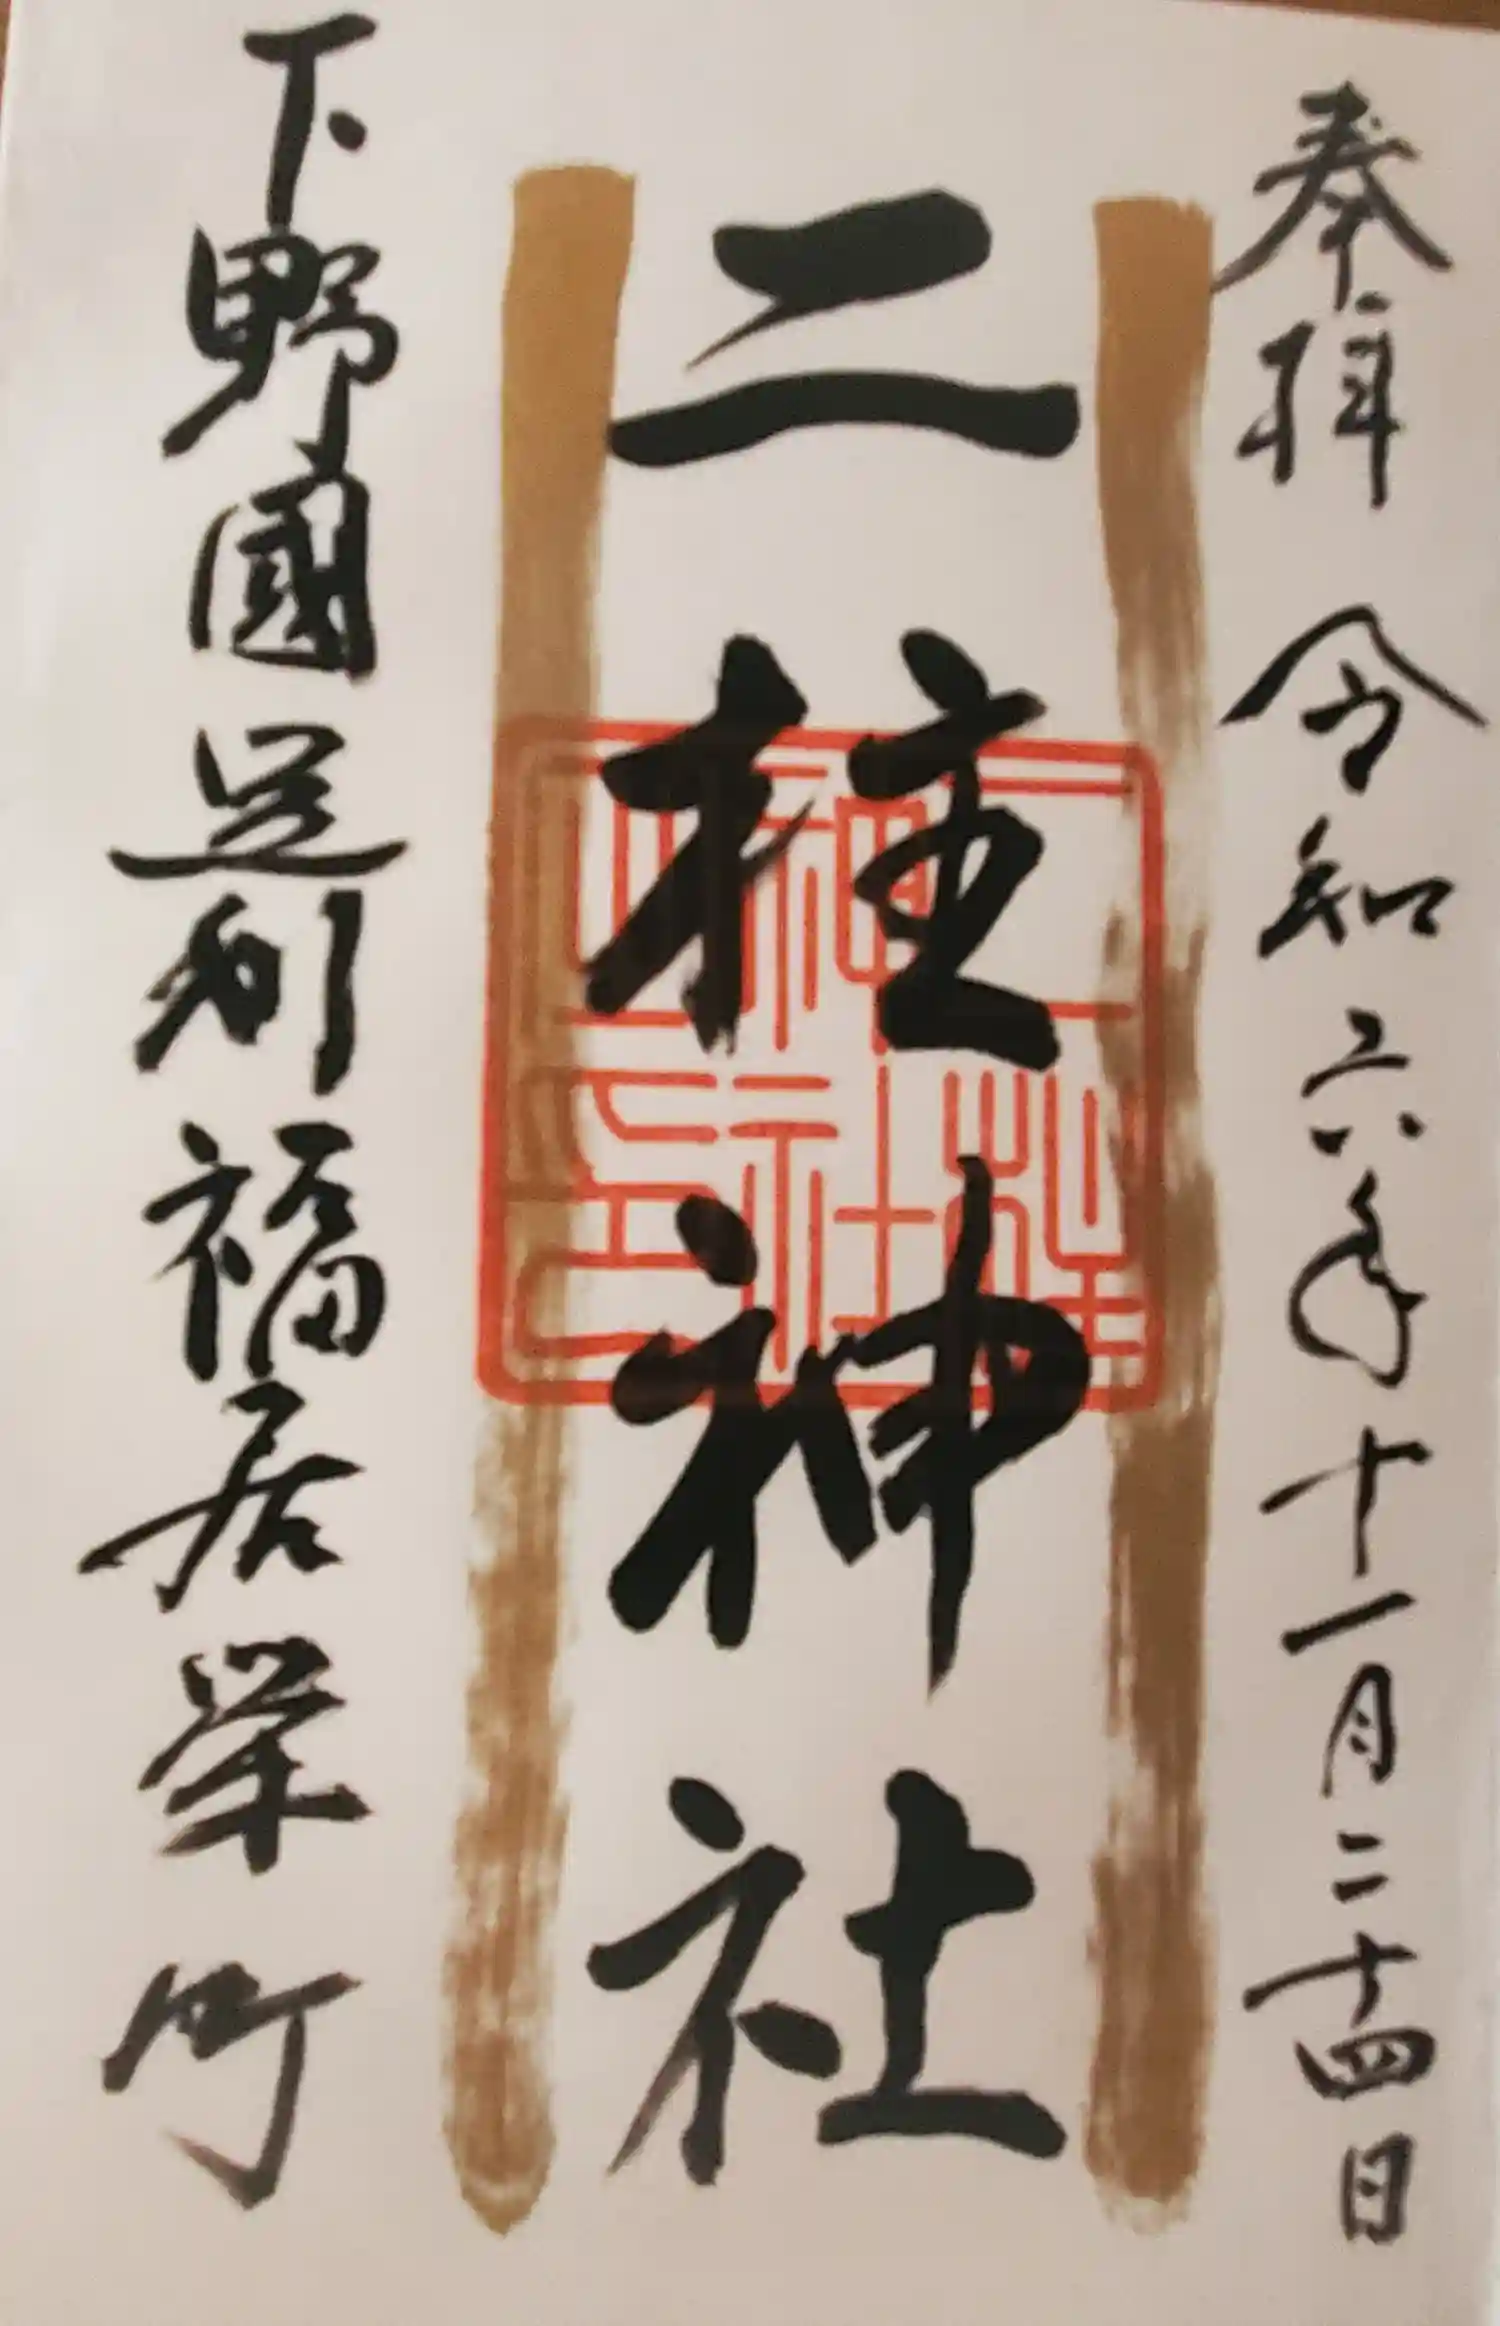 奉拝 令和六年十一月二十四日
二柱神社
二柱神社之印
下野國足利福居栄町